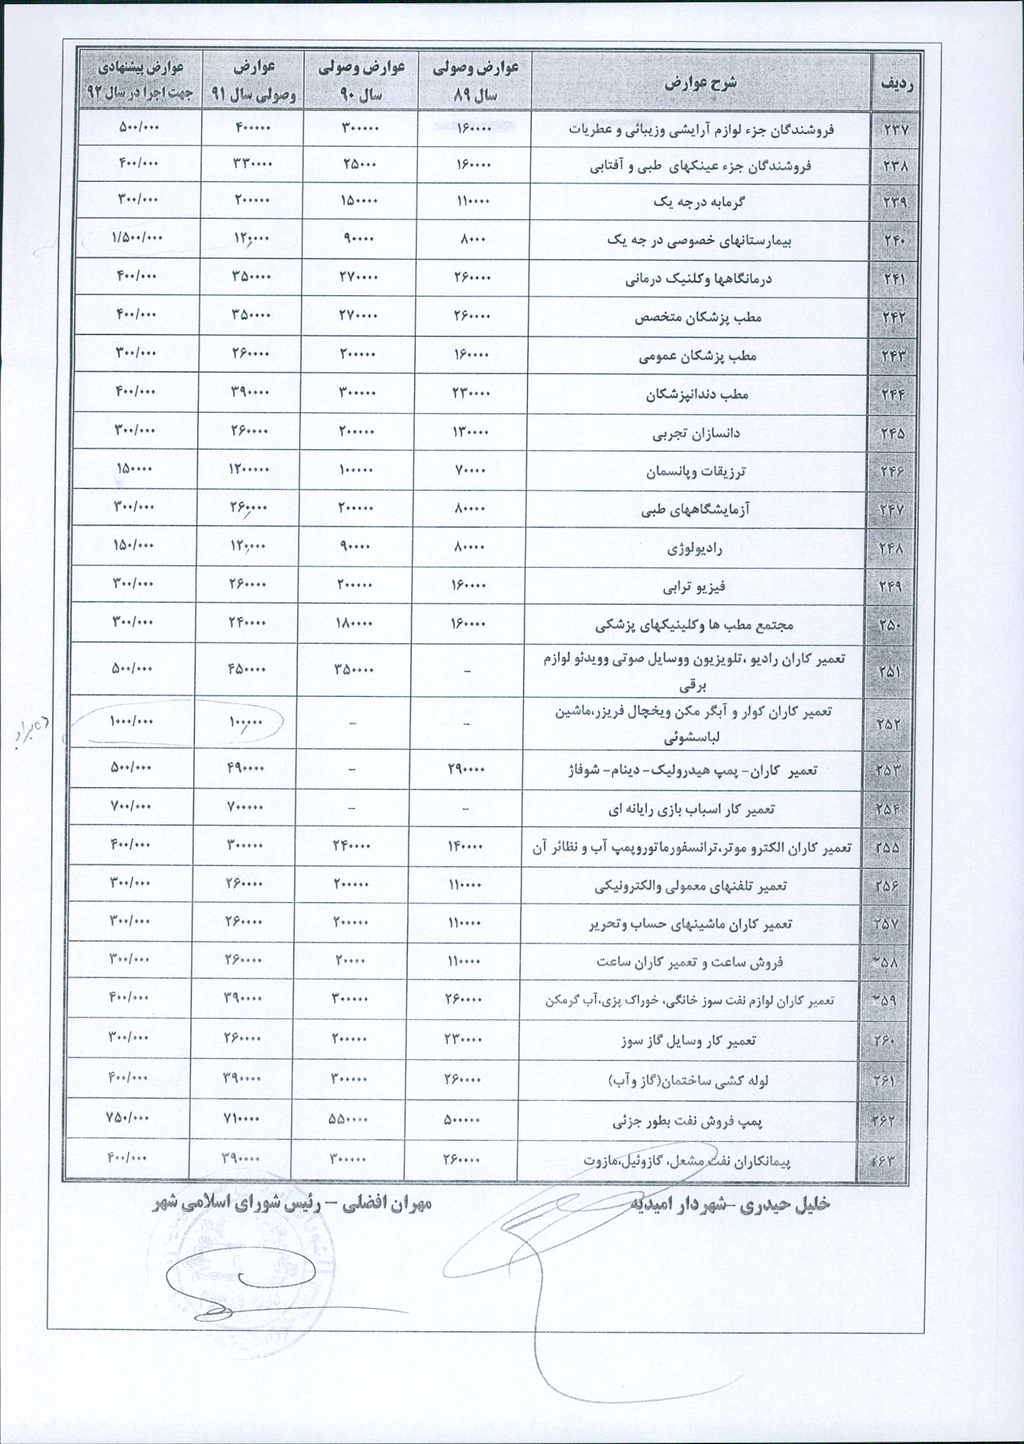 ردیف شرح عوارض عوارض وصولی سال ۸۹ عوارض وصولی سال ۹۰ عوارض وصولی سال ۹۱ عوارض پیشنهادی جهت اجرا در سال ۹۲
۲۳۷ فروشندگان جزء لوازم آرایشی وزیبائی و عطریات ۱۶۰۰۰۰ ۳۰۰۰۰۰ ۴۰۰۰۰۰ ۵۰۰/۰۰۰
۲۳۸ فروشندگان جزء عینکهای طبی و آفتابی ۱۶۰۰۰۰ ۲۵۰۰۰ ۳۳۰۰۰۰ ۴۰۰/۰۰۰
۲۳۹ گرمابه درجه یک ۱۱۰۰۰۰ ۱۵۰۰۰۰ ۲۰۰۰۰۰ ۳۰۰/۰۰۰
۲۴۰ بیمارستانهای خصوصی در جه یک ۸۰۰۰ ۹۰۰۰۰ ۱۲۰,۰۰۰ ۱/۵۰۰/۰۰۰
۲۴۱ درمانگاهها وکلنیک درمانی ۲۶۰۰۰۰ ۲۷۰۰۰۰ ۳۵۰۰۰۰ ۴۰۰/۰۰۰
۲۴۲ مطب پزشکان متخصص ۲۶۰۰۰۰ ۲۷۰۰۰۰ ۳۵۰۰۰۰ ۴۰۰/۰۰۰
۲۴۳ مطب پزشکان عمومی ۱۶۰۰۰۰ ۲۰۰۰۰۰ ۲۶۰۰۰۰ ۳۰۰/۰۰۰
۲۴۴ مطب دندانپزشکان ۲۳۰۰۰۰ ۳۰۰۰۰۰ ۳۹۰۰۰۰ ۴۰۰/۰۰۰
۲۴۵ دانسازان تجربی ۱۳۰۰۰۰ ۲۰۰۰۰۰ ۲۶۰۰۰۰ ۳۰۰/۰۰۰
۲۴۶ ترزیقات وپانسمان ۷۰۰۰۰ ۱۰۰۰۰۰ ۱۲۰۰۰۰۰ ۱۵۰۰۰۰
۲۴۷ آزمایشگاههای طبی ۸۰۰۰۰ ۲۰۰۰۰۰ ۲۶۰,۰۰۰ ۳۰۰/۰۰۰
۲۴۸ رادیولوژی ۸۰۰۰۰ ۹۰۰۰۰ ۱۲۰,۰۰۰ ۱۵۰/۰۰۰
۲۴۹ فیزیو ترابی ۱۶۰۰۰۰ ۲۰۰۰۰۰ ۲۶۰۰۰۰ ۳۰۰/۰۰۰
۲۵۰ مجتمع مطب ها وکلینیکهای پزشکی ۱۶۰۰۰۰ ۱۸۰۰۰۰ ۲۴۰۰۰۰ ۳۰۰/۰۰۰
۲۵۱ تعمیر کاران رادیو ،تلویزیون ووسایل صوتی وویدئو لوازم
برقی – ۳۵۰۰۰۰ ۴۵۰۰۰۰ ۵۰۰/۰۰۰
۲۵۲ تعمیر کاران کولر و آبگر مکن ویخچال فریزر،ماشین
لباسشوئی – – ۱۰۰,۰۰۰ ۱۰۰۰/۰۰۰
۲۵۳ تعمیر کاران- پمپ هیدرولیک- دینام- شوفاژ ۲۹۰۰۰۰ – ۴۹۰۰۰۰ ۵۰۰/۰۰۰
۲۵۴ تعمیر کار اسباب بازی رایانه ای – – ۷۰۰۰۰۰ ۷۰۰/۰۰۰
۲۵۵ تعمیر کاران الکترو موتر،ترانسفورماتوروپمپ آب و نظائر آن ۱۴۰۰۰۰ ۲۴۰۰۰۰ ۳۰۰۰۰۰ ۴۰۰/۰۰۰
۲۵۶ تعمیر تلفنهای معمولی والکترونیکی ۱۱۰۰۰۰ ۲۰۰۰۰۰ ۲۶۰۰۰۰ ۳۰۰/۰۰۰
۲۵۷ تعمیر کاران ماشینهای حساب وتحریر ۱۱۰۰۰۰ ۲۰۰۰۰۰ ۲۶۰۰۰۰ ۳۰۰/۰۰۰
۲۵۸ فروش ساعت و تعمیر کاران ساعت ۱۱۰۰۰۰ ۲۰۰۰۰ ۲۶۰۰۰۰ ۳۰۰/۰۰۰
۲۵۹ تعمیر کاران لوازم نفت سوز خانگی، خوراک پزی،آب گرمکن ۲۶۰۰۰۰ ۳۰۰۰۰۰ ۳۹۰۰۰۰ ۴۰۰/۰۰۰
۲۶۰ تعمیر کار وسایل گاز سوز ۲۳۰۰۰۰ ۲۰۰۰۰۰ ۲۶۰۰۰۰ ۳۰۰/۰۰۰
۲۶۱ لوله کشی ساختمان(گاز و آب) ۲۶۰۰۰۰ ۳۰۰۰۰۰ ۳۹۰۰۰۰ ۴۰۰/۰۰۰
۲۶۲ پمپ فروش نفت بطور جزئی ۵۰۰۰۰۰ ۵۵۰۰۰۰ ۷۱۰۰۰۰ ۷۵۰/۰۰۰
۲۶۳ پیمانکاران نفت مشعل، گازوئیل،مازوت ۲۶۰۰۰۰ ۳۰۰۰۰۰ ۳۹۰۰۰۰ ۴۰۰/۰۰۰
خلیل حیدری –شهردار امیدیه مهران افضلی – رئیس شورای اسلامی شهر